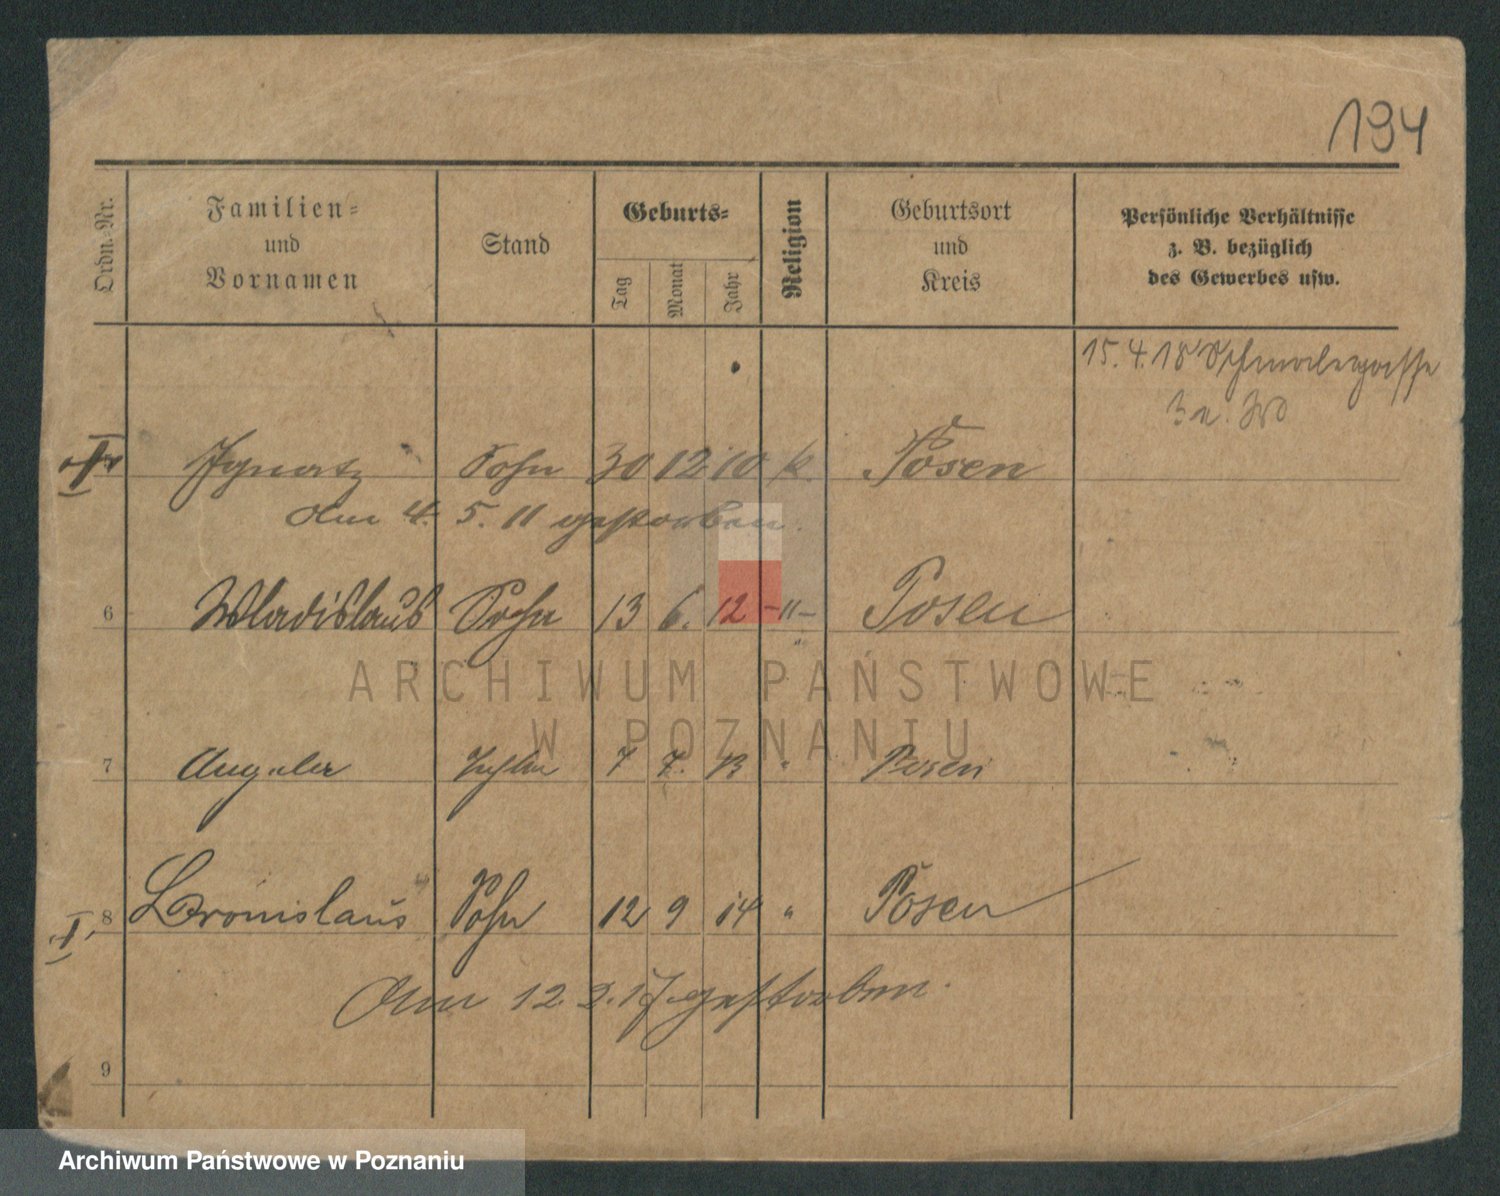 194
Ordn.-Nr.
Familien-
und
Vornamen
Stand
Geburts-
Tag
Monat
Jahr
Religion
Geburtsort
und
Kreis
Persönliche Verhältnisse
z. B. bezüglich
des Gewerbes usw.
15.4.18
Ignatz Sohn 30 12 10 k. Posen
Am 4. 5. 11 gestorben.
6 Wladislaus Sohn 13 6. 12 -"- Posen
ARCHIWUM PAŃSTWOWE
W POZNANIU
7 7 7. 13 " Posen
8 Bronislaus Sohn 12 9 14 " Posen
Am 12. 2. 17 gestorben.
9
Archiwum Państwowe w Poznaniu